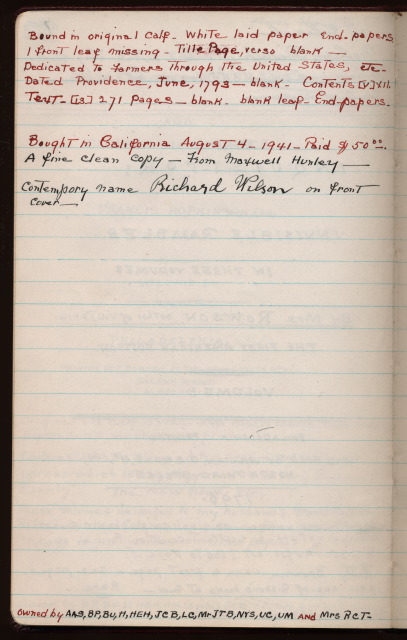 Bound in original Calf. White laid paper End-papers
1 front leaf missing - Title Page, verso blank —
Dedicated to Farmers Through the United States, etc-
Dated Providence, June, 1793 - blank. Contents [v]
Text - [13] 271 pages - blank. blank leaf - End-papers.
Bought in California August 4 - 1941 - Paid $50.00.
A fine clean copy - From Maxwell Hunley —
Contempory name Richard Wilson on front
cover —
Owned by AAS, BP, BU, H, HEH, JCB, LC, Mr JTB, NYS, UC, UM AND Mrs RCT-